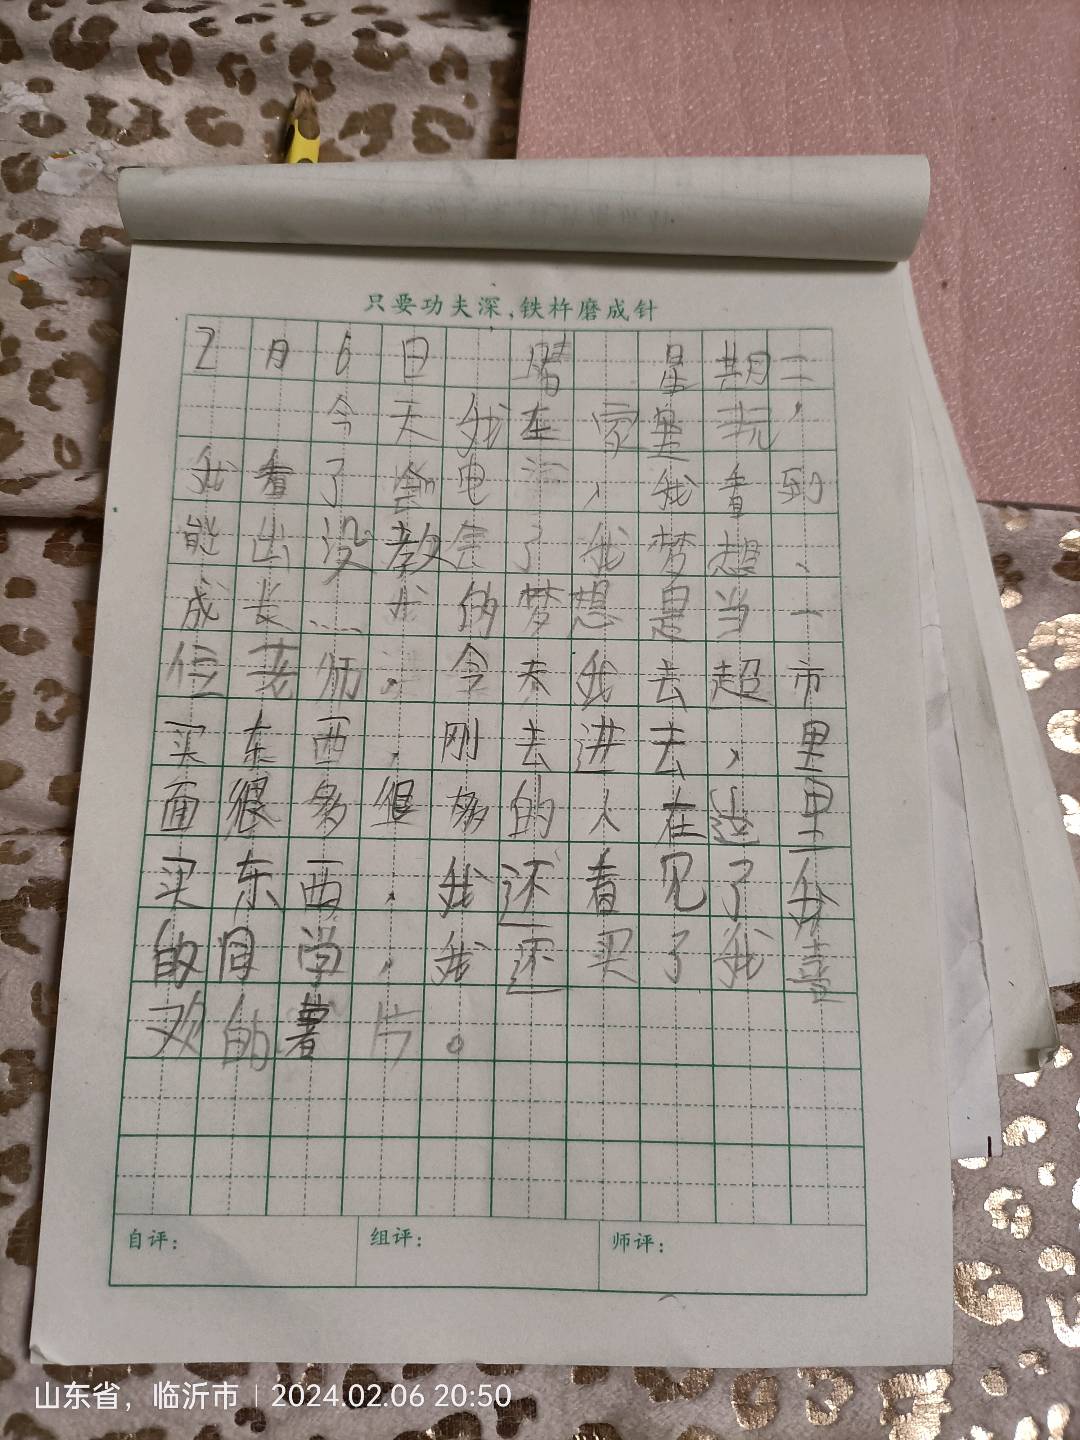 只要功夫深,铁杵磨成针
2月6日 晴 星期二
今天我在家里玩,
我看了会电,我看到
能出没教会了我梦想、
成长……我的梦想是当一
位老师。今天我去超市
买东西,刚去进去,里
面很多很多的人在这里
买东西,我还看见了我
的同学,我还买了我喜
欢的薯片。
自评: 组评: 师评:
山东省,临沂市 | 2024.02.06 20:50